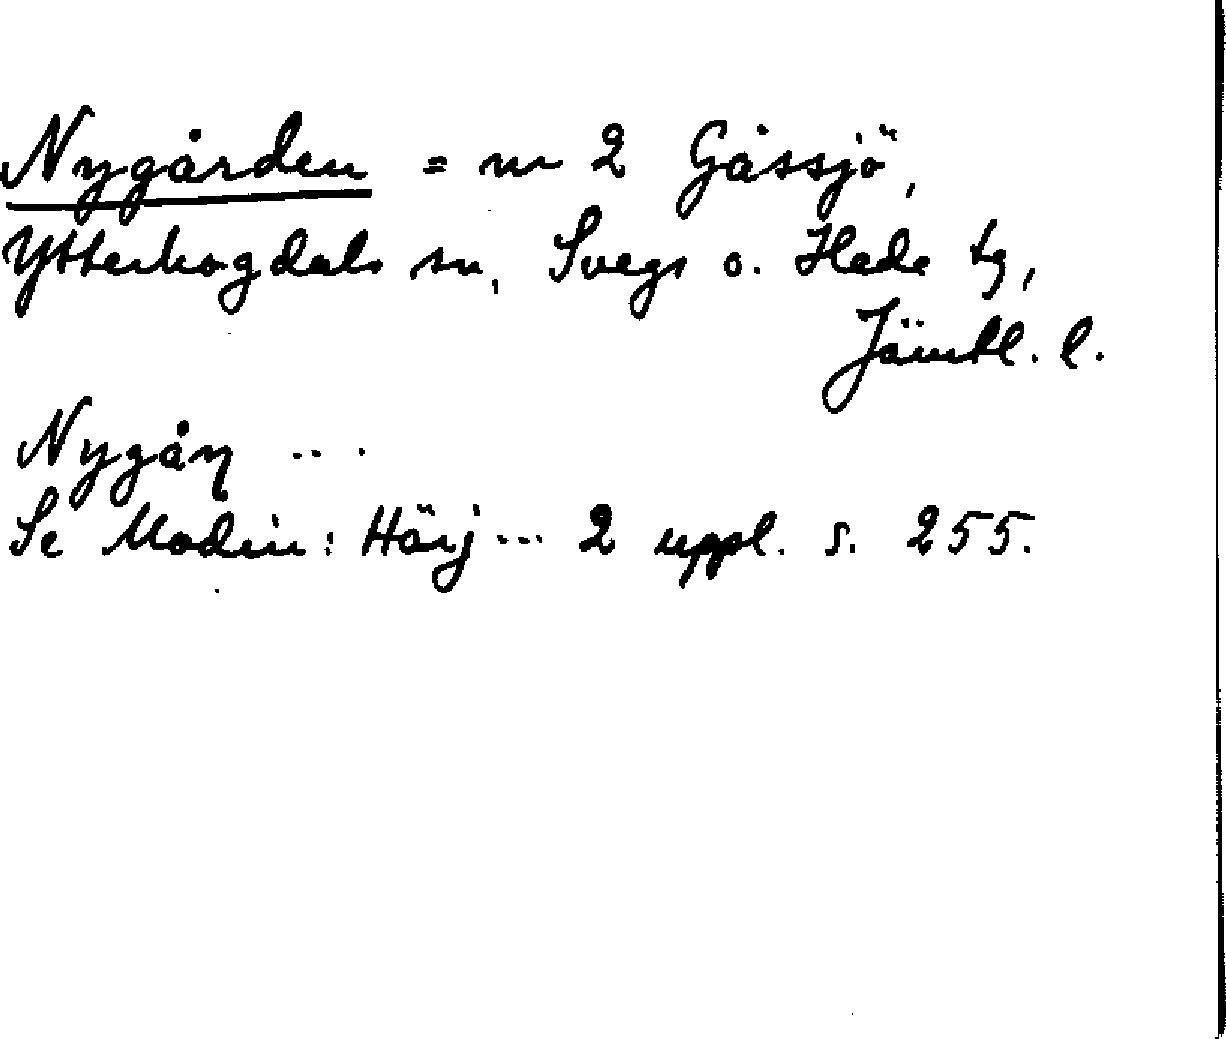 Nygården = nr 2 Gåssjö,
Ytterhogdals sn, Svegs o. Hede tg,
Jämtl. l.
Nygåɳ ...
Se Modin: Härj ... 2 uppl. s. 255.